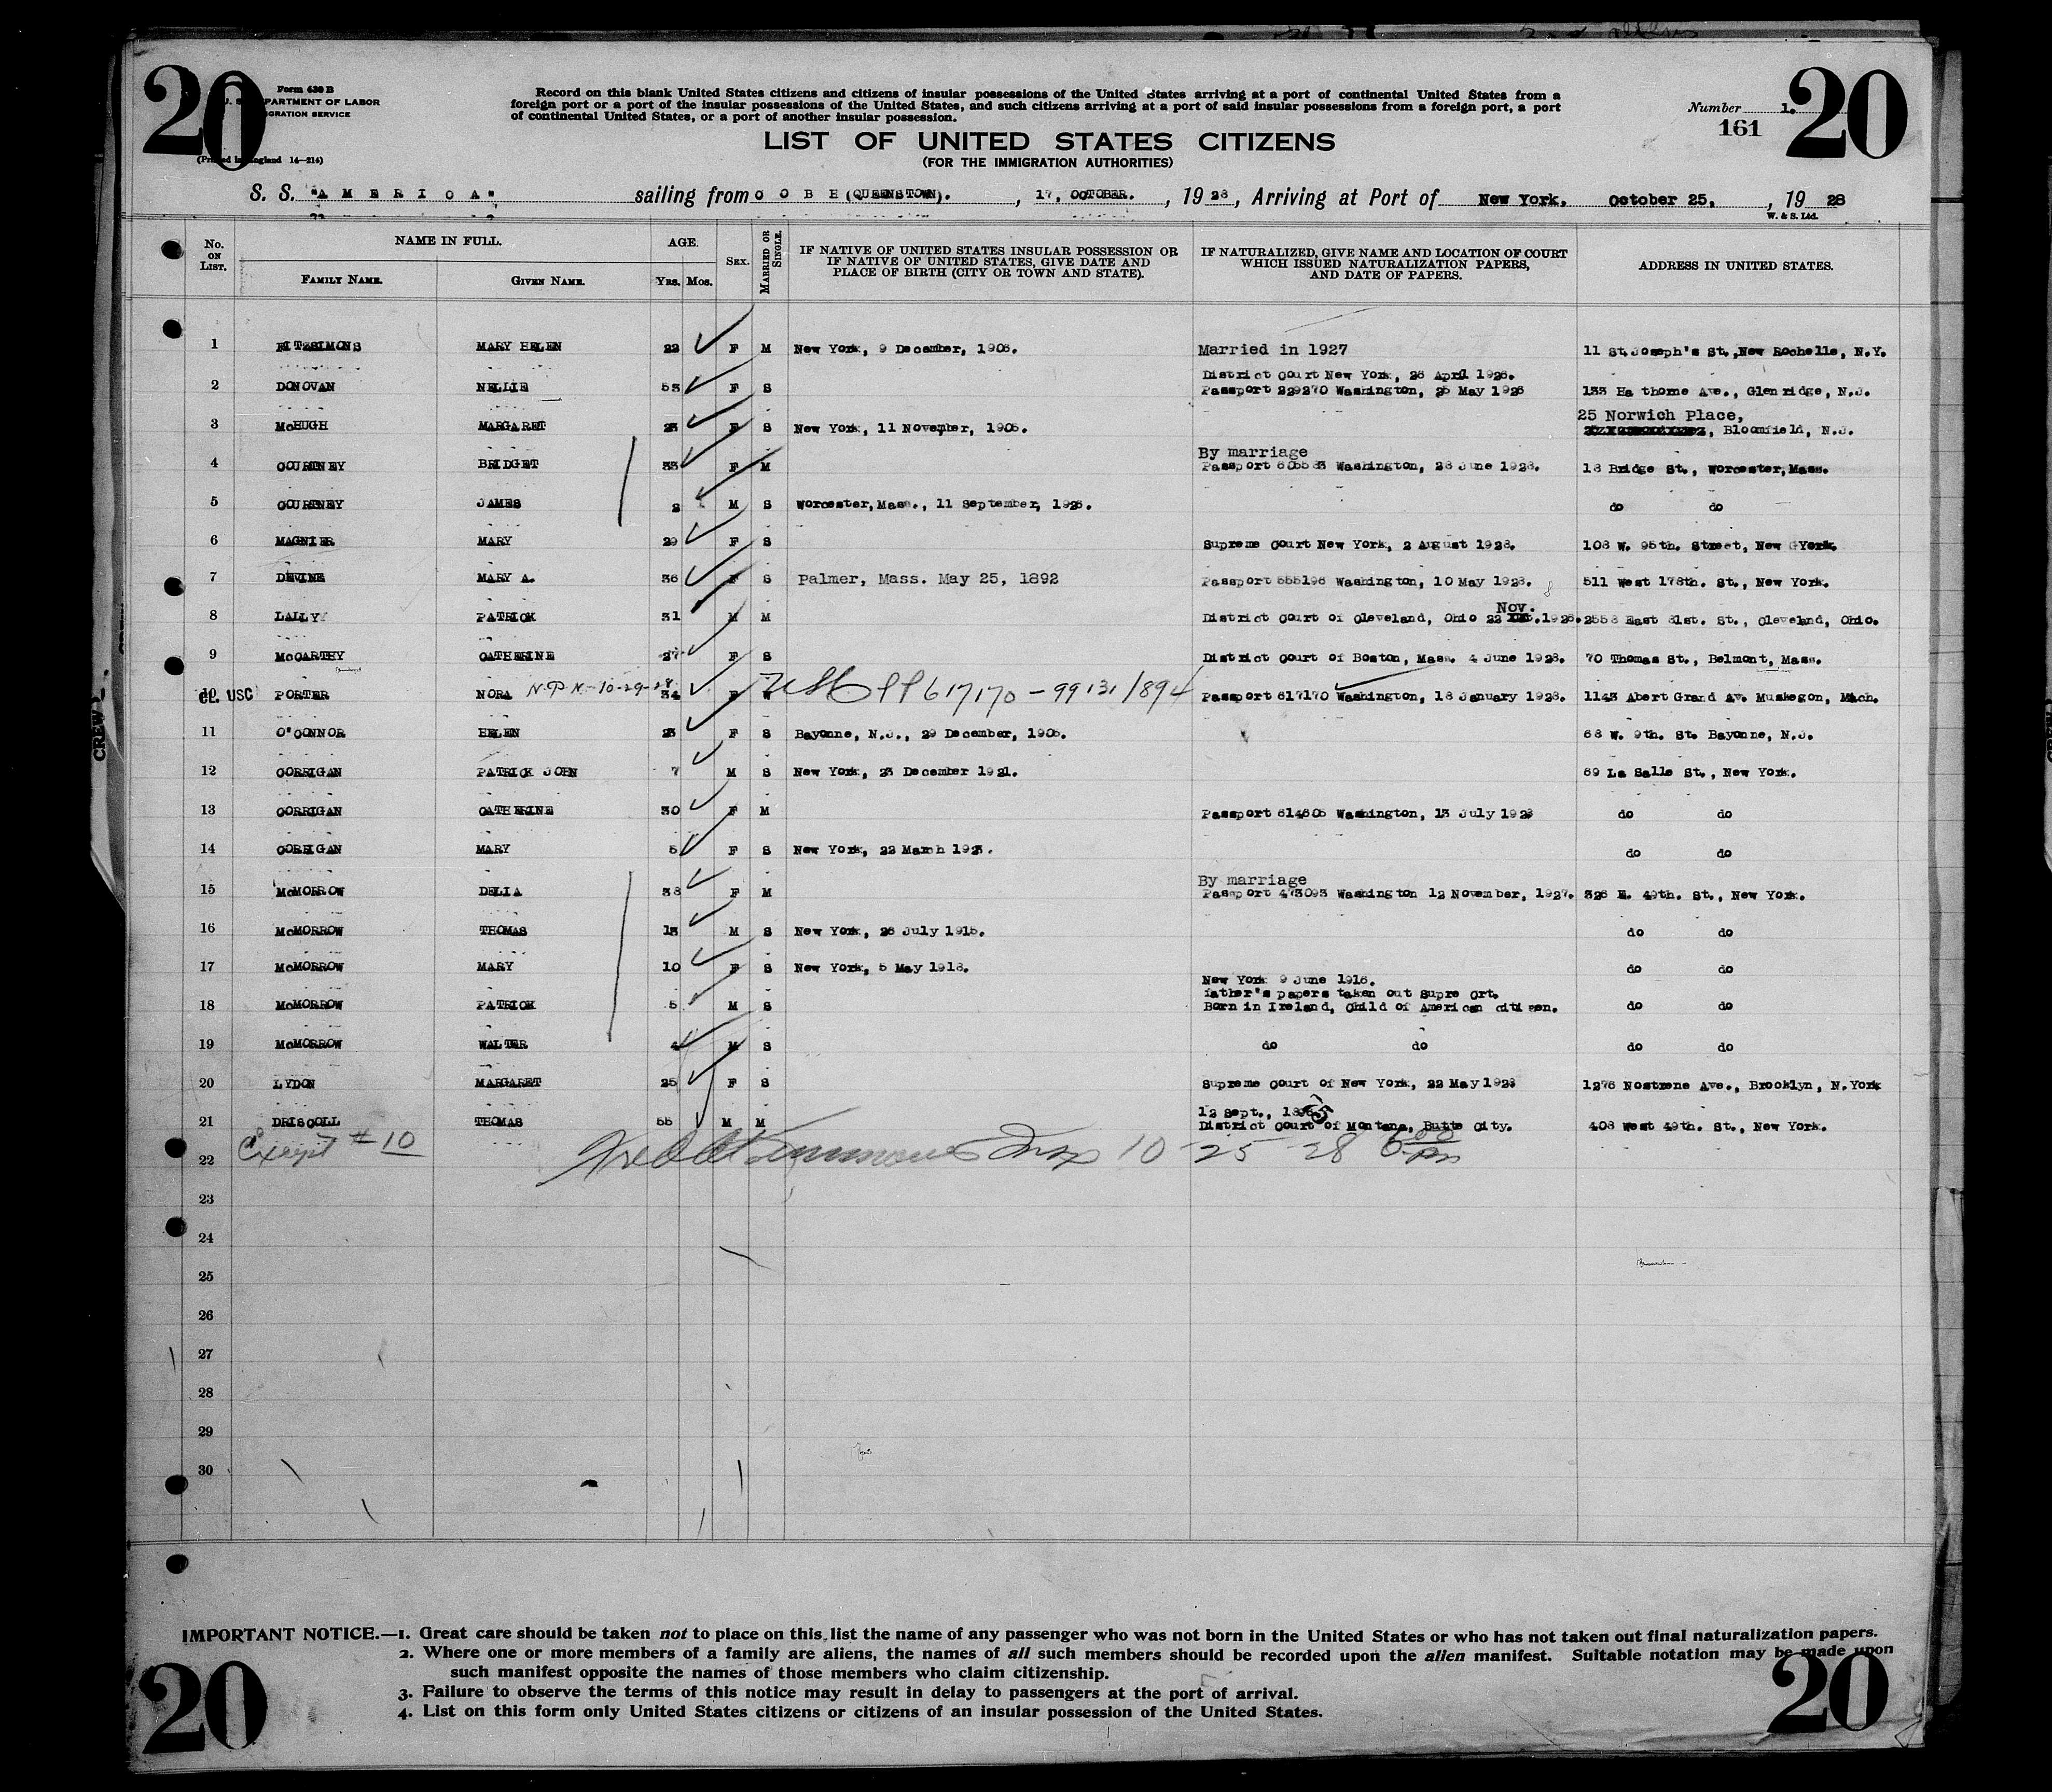 20 20
Form 630 B
U. S. DEPARTMENT OF LABOR
IMMIGRATION SERVICE
(Printed in England 14—214)
Record on this blank United States citizens and citizens of insular possessions of the United States arriving at a port of continental United States from a
foreign port or a port of the insular possessions of the United States, and such citizens arriving at a port of said insular possessions from a foreign port, a port
of continental United States, or a port of another insular possession.
Number 1.
161
LIST OF UNITED STATES CITIZENS
(FOR THE IMMIGRATION AUTHORITIES)
S. S. "AMERICA" sailing from COBH (QUEENSTOWN). , 17, OCTOBER. , 19 28 , Arriving at Port of New York, October 25, , 19 28
W. & S. Ltd.
No. ON LIST. NAME IN FULL. FAMILY NAME. GIVEN NAME. AGE. YRS. MOS. SEX. MARRIED OR SINGLE. IF NATIVE OF UNITED STATES INSULAR POSSESSION OR IF NATIVE OF UNITED STATES, GIVE DATE AND PLACE OF BIRTH (CITY OR TOWN AND STATE). IF NATURALIZED, GIVE NAME AND LOCATION OF COURT WHICH ISSUED NATURALIZATION PAPERS, AND DATE OF PAPERS. ADDRESS IN UNITED STATES.
1 FITZSIMONS MARY HELEN 22 F M New York, 9 December, 1905. Married in 1927 11 St.Joseph's St.,New Rochelle, N.Y.
District Court New York, 26 April 1926.
2 DONOVAN NELLIE 53 F S Passport 229270 Washington, 25 May 1926 133 Ha thorne Ave., Glenridge, N.J.
25 Norwich Place,
3 McHUGH MARGARET 23 F S New York, 11 November, 1905. , Bloomfield, N.J.
By marriage
4 COURTNEY BRIDGET 33 F M Passport 605583 Washington, 28 June 1928. 18 Bridge St., Worcester,Mass.
5 COURTNEY JAMES 2 M S Worcester,Mass., 11 September, 1926. do do
6 MAGNIER MARY 29 F S Supreme Court New York, 2 August 1928. 108 W. 95th. Street, New York.
7 DEVINE MARY A. 36 F S Palmer, Mass. May 25, 1892 Passport 555196 Washington, 10 May 1928. 511 West 178th. St., New York.
Nov.
8 LALLY PATRICK 31 M M District Court of Cleveland, Ohio 22 .1926. 2558 East 81st. St., Cleveland, Ohio.
9 McCARTHY CATHERINE 27 F S District Court of Boston, Mass. 4 June 1928. 70 Thomas St., Belmont, Mass.
10 CL. USC PORTER NORA N.P.K-10-29-28 34 F W USC PP 617170-99131/894 Passport 617170 Washington, 18 January 1928. 1143 Abert Grand Av. Muskegon, Mich.
11 O'CONNOR HELEN 23 F S Bayonne, N.J., 29 December, 1905. 68 W. 9th. St. Bayonne, N.J.
12 CORRIGAN PATRICK JOHN 7 M S New York, 23 December 1921. 69 La Salle St., New York.
13 CORRIGAN CATHERINE 30 F M Passport 614605 Washington, 13 July 1928 do do
14 CORRIGAN MARY 5 F S New York, 22 March 1923. do do
By marriage
15 McMORROW DELIA 38 F M Passport 473093 Washington 12 November, 1927. 326 E. 49th. St., New York.
16 McMORROW THOMAS 13 M S New York, 26 July 1915. do do
17 McMORROW MARY 10 F S New York, 5 May 1918. do do
New York 9 June 1916.
father's papers taken out Supre Crt.
18 McMORROW PATRICK 5 M S Born in Ireland, Child of American citizen. do do
19 McMORROW WALTER 4 M S do do do do
20 LYDON MARGARET 25 F S Supreme Court of New York, 22 May 1928 1276 Nostrene Ave., Brooklyn, N.York
12 Sept., 1898
21 DRISCOLL THOMAS 55 M M District Court of Montana, Butte City. 408 West 49th. St., New York.
Except #10 Insp 10 25 28 6 00 pm
22
23
24
25
26
27
28
29
30
CREW
IMPORTANT NOTICE.—1. Great care should be taken not to place on this list the name of any passenger who was not born in the United States or who has not taken out final naturalization papers.
2. Where one or more members of a family are aliens, the names of all such members should be recorded upon the alien manifest. Suitable notation may be made upon
such manifest opposite the names of those members who claim citizenship.
3. Failure to observe the terms of this notice may result in delay to passengers at the port of arrival.
4. List on this form only United States citizens or citizens of an insular possession of the United States.
20 20